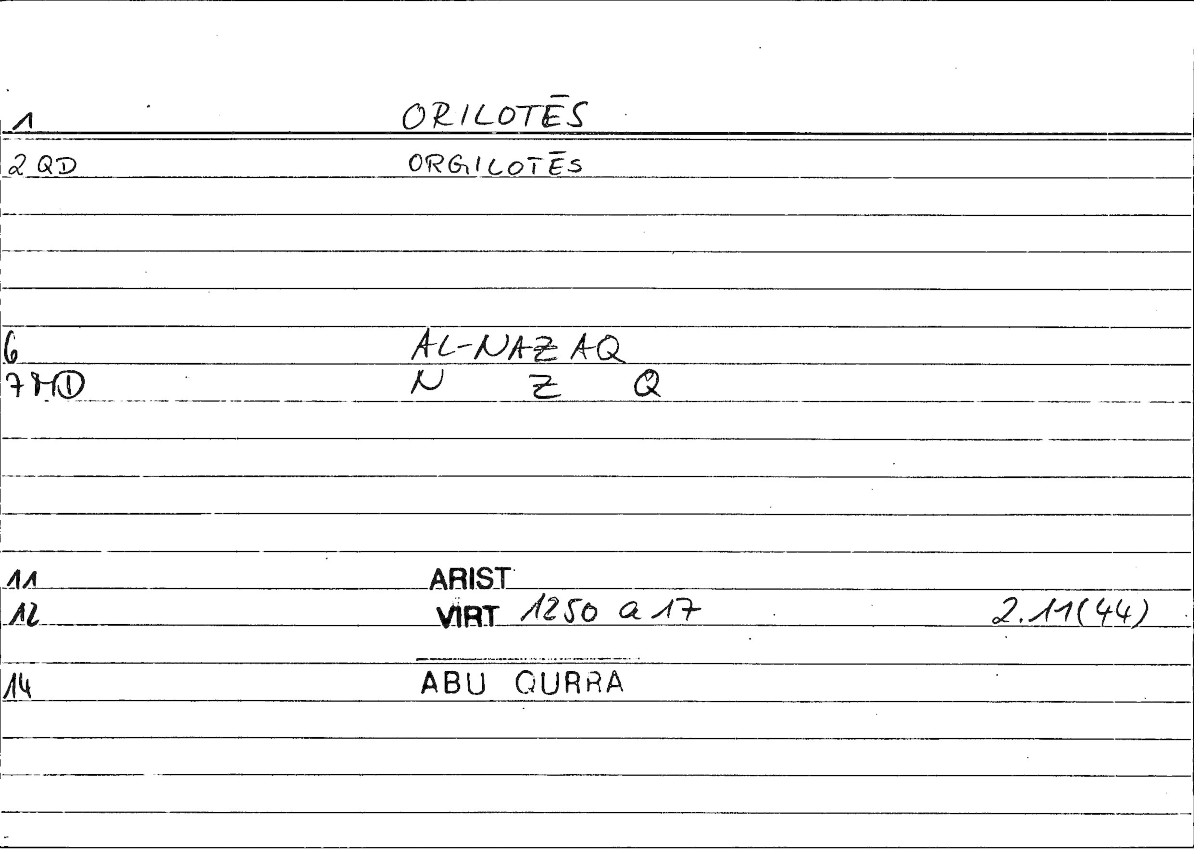 1 ORILOTĒS
2 QD ORGILOTĒS
6 AL-NAZAQ
N Z Q
11 ARIST
12 VIRT 1250 a 17 2.11(44)
14 ABU QURRA